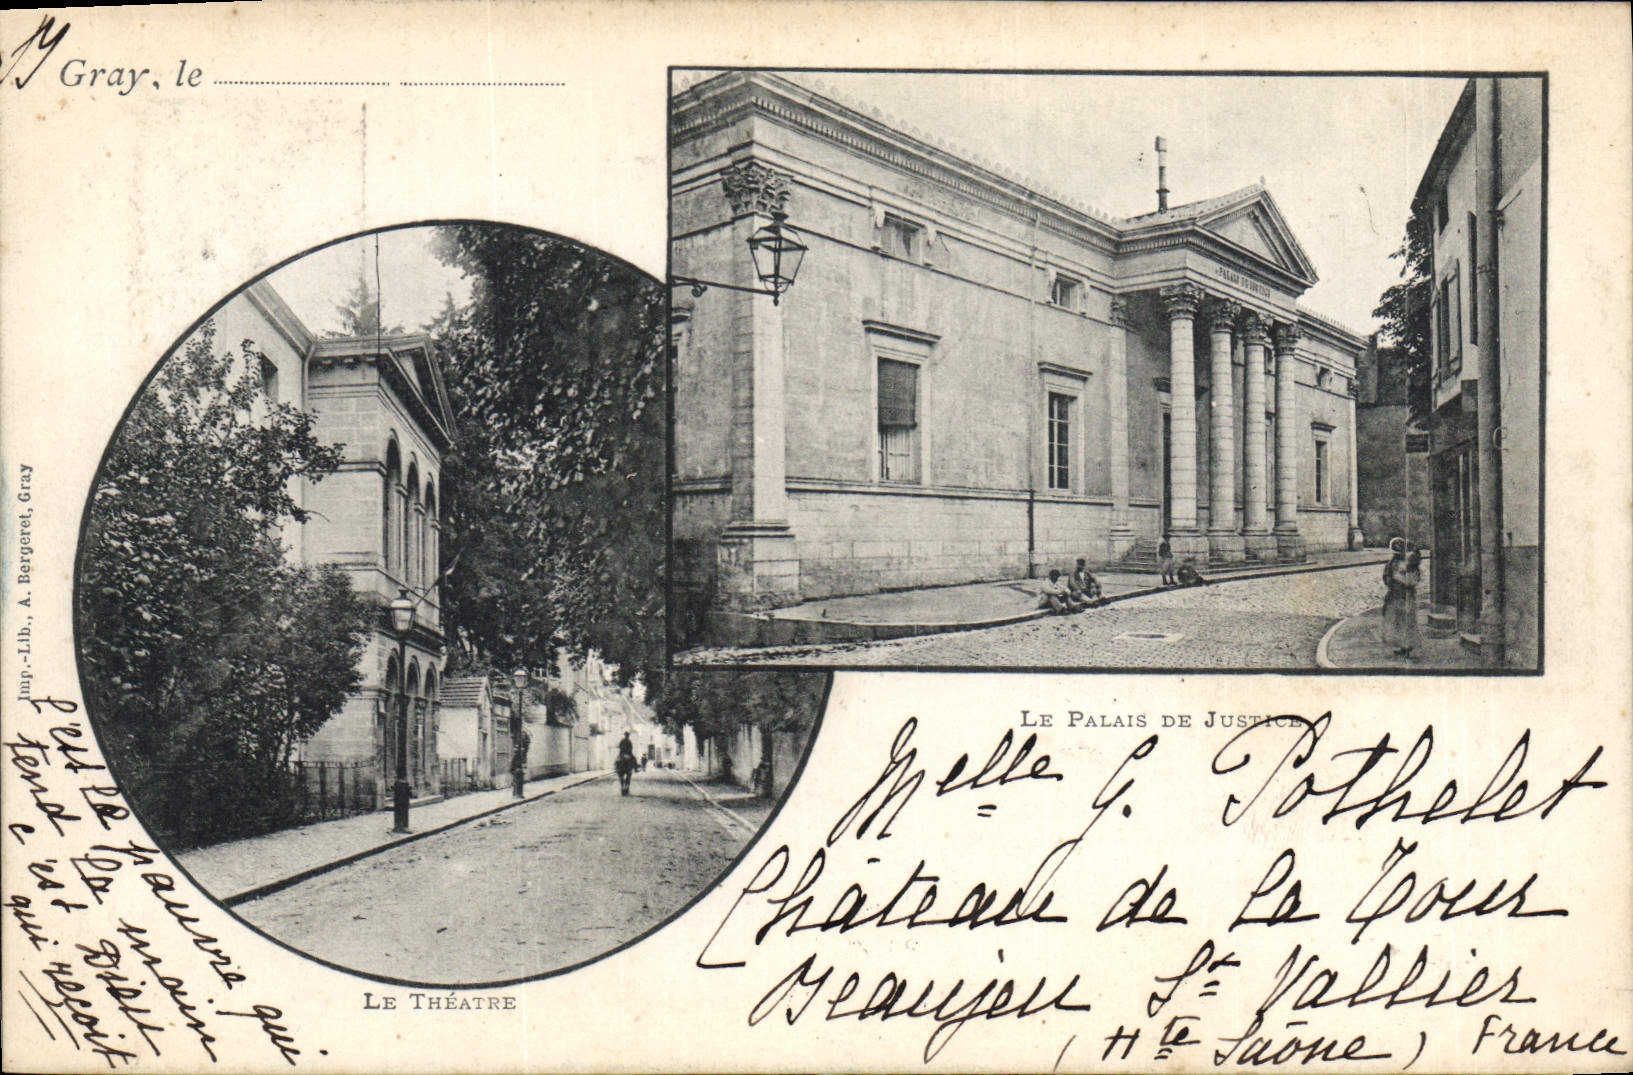 Gray, le
PALAIS DE JUSTICE
LE PALAIS DE JUSTICE
LE THÉATRE
Imp.-Lib., A. Bergeret, Gray
Melle G. Pothelet
Château de la Tour
Beaujeu St Vallier
(Hte Saône) France
C'est la pauvre qui
tend la main
c'est Dieu
qui reçoit